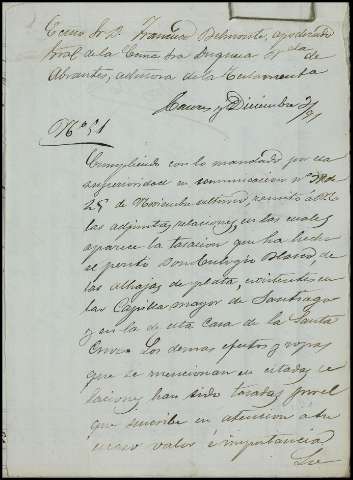 Excmo Sr D. Francisco Belmonte, apoderado
gral de la Excma Sra Duquesa Vda de
Abrantes, admora de la Testamentª
Caceres y Diciembre 3/91
Nº 51
Cumpliendo con lo mandado por esa
superioridad en comunicacion nº
25 de Noviembre ultimo, remito á
las adjuntas relaciones, en las cuales
aparece la tasacion que ha hecho
el perito Don Eulogio Blasco, de
las alhajas de plata, existentes en
la Capilla mayor de Santiago
y en la de esta casa de la Santa
Cruz. Los demas efectos y ropas
que se mencionan en citadas re
laciones, han sido tasados por el
que suscribe en atencion á su
escaso valor é importancia